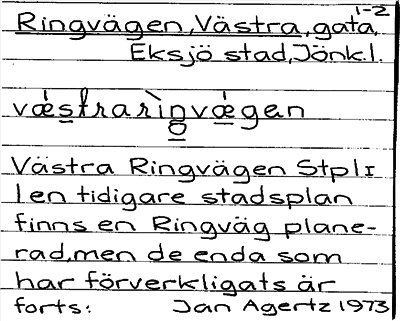 1-2
Ringvägen, Västra, gata,
Eksjö stad, Jönk.l.
væ̀strarìŋvæ̀gen
Västra Ringvägen Stpl I
I en tidigare stadsplan
finns en Ringväg plane-
rad, men de enda som
har förverkligats är
forts: Jan Agertz 1973